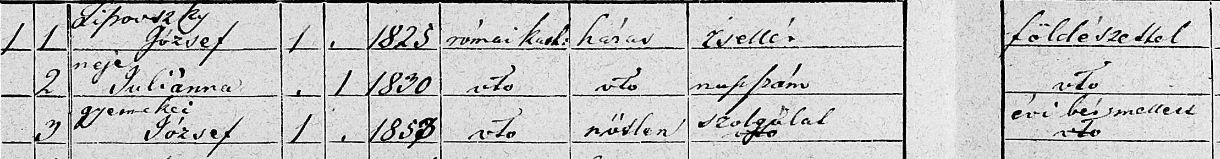 Lipovszky
1 1 József 1 . 1825 római kath: házas zsellér földészettel
neje
2 Juliánna . 1 1830 vto vto napszám vto
gyemekei szolgálat évi bér mellett
3 József 1 . 1857 vto nőtlen vto vto